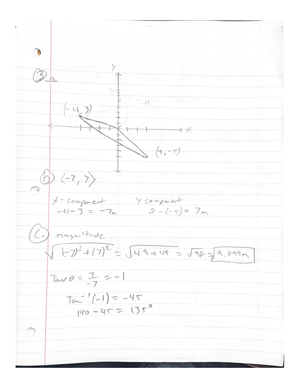 Y
③ a
(-4, 3)
X
(3, -4)
ⓑ ⟨-7, 7⟩
X-component Y component
-4-3 = -7m 3-(-4) = 7m
ⓒ. magnitude
√(-7)²+(7)² = √49+49 = √98 = 9.899m
Tan θ = 7/-7 = -1
Tan⁻¹(-1) = -45
180-45 = 135°